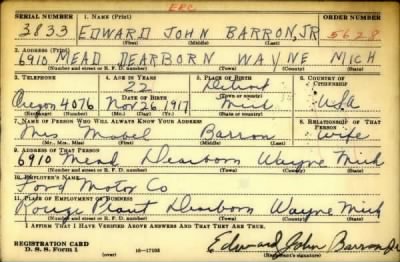 ERC
SERIAL NUMBER 1. NAME (Print) ORDER NUMBER
3833 EDWARD JOHN BARRON, JR 5628
(First) (Middle) (Last)
2. ADDRESS (Print)
6910 MEAD DEARBORN WAYNE MICH
(Number and street or R. F. D. number) (Town) (County) (State)
3. TELEPHONE 4. AGE IN YEARS 5. PLACE OF BIRTH 6. COUNTRY OF CITIZENSHIP
22 Detroit
DATE OF BIRTH (Town or county)
Oregon 4076 Nov 26 1917 Mich USA
(Exchange) (Number) (Mo.) (Day) (Yr.) (State or country)
7. NAME OF PERSON WHO WILL ALWAYS KNOW YOUR ADDRESS 8. RELATIONSHIP OF THAT PERSON
Mrs Mabel Barron Wife
(Mr., Mrs., Miss) (First) (Middle) (Last)
9. ADDRESS OF THAT PERSON
6910 Mead Dearborn Wayne Mich
(Number and street or R. F. D. number) (Town) (County) (State)
10. EMPLOYER'S NAME
Ford Motor Co
11. PLACE OF EMPLOYMENT OR BUSINESS
Rouge Plant Dearborn Wayne Mich
(Number and street or R. F. D. number) (Town) (County) (State)
I AFFIRM THAT I HAVE VERIFIED ABOVE ANSWERS AND THAT THEY ARE TRUE.
REGISTRATION CARD Edward John Barron Jr
D. S. S. Form 1 16-17105 (Registrant's signature)